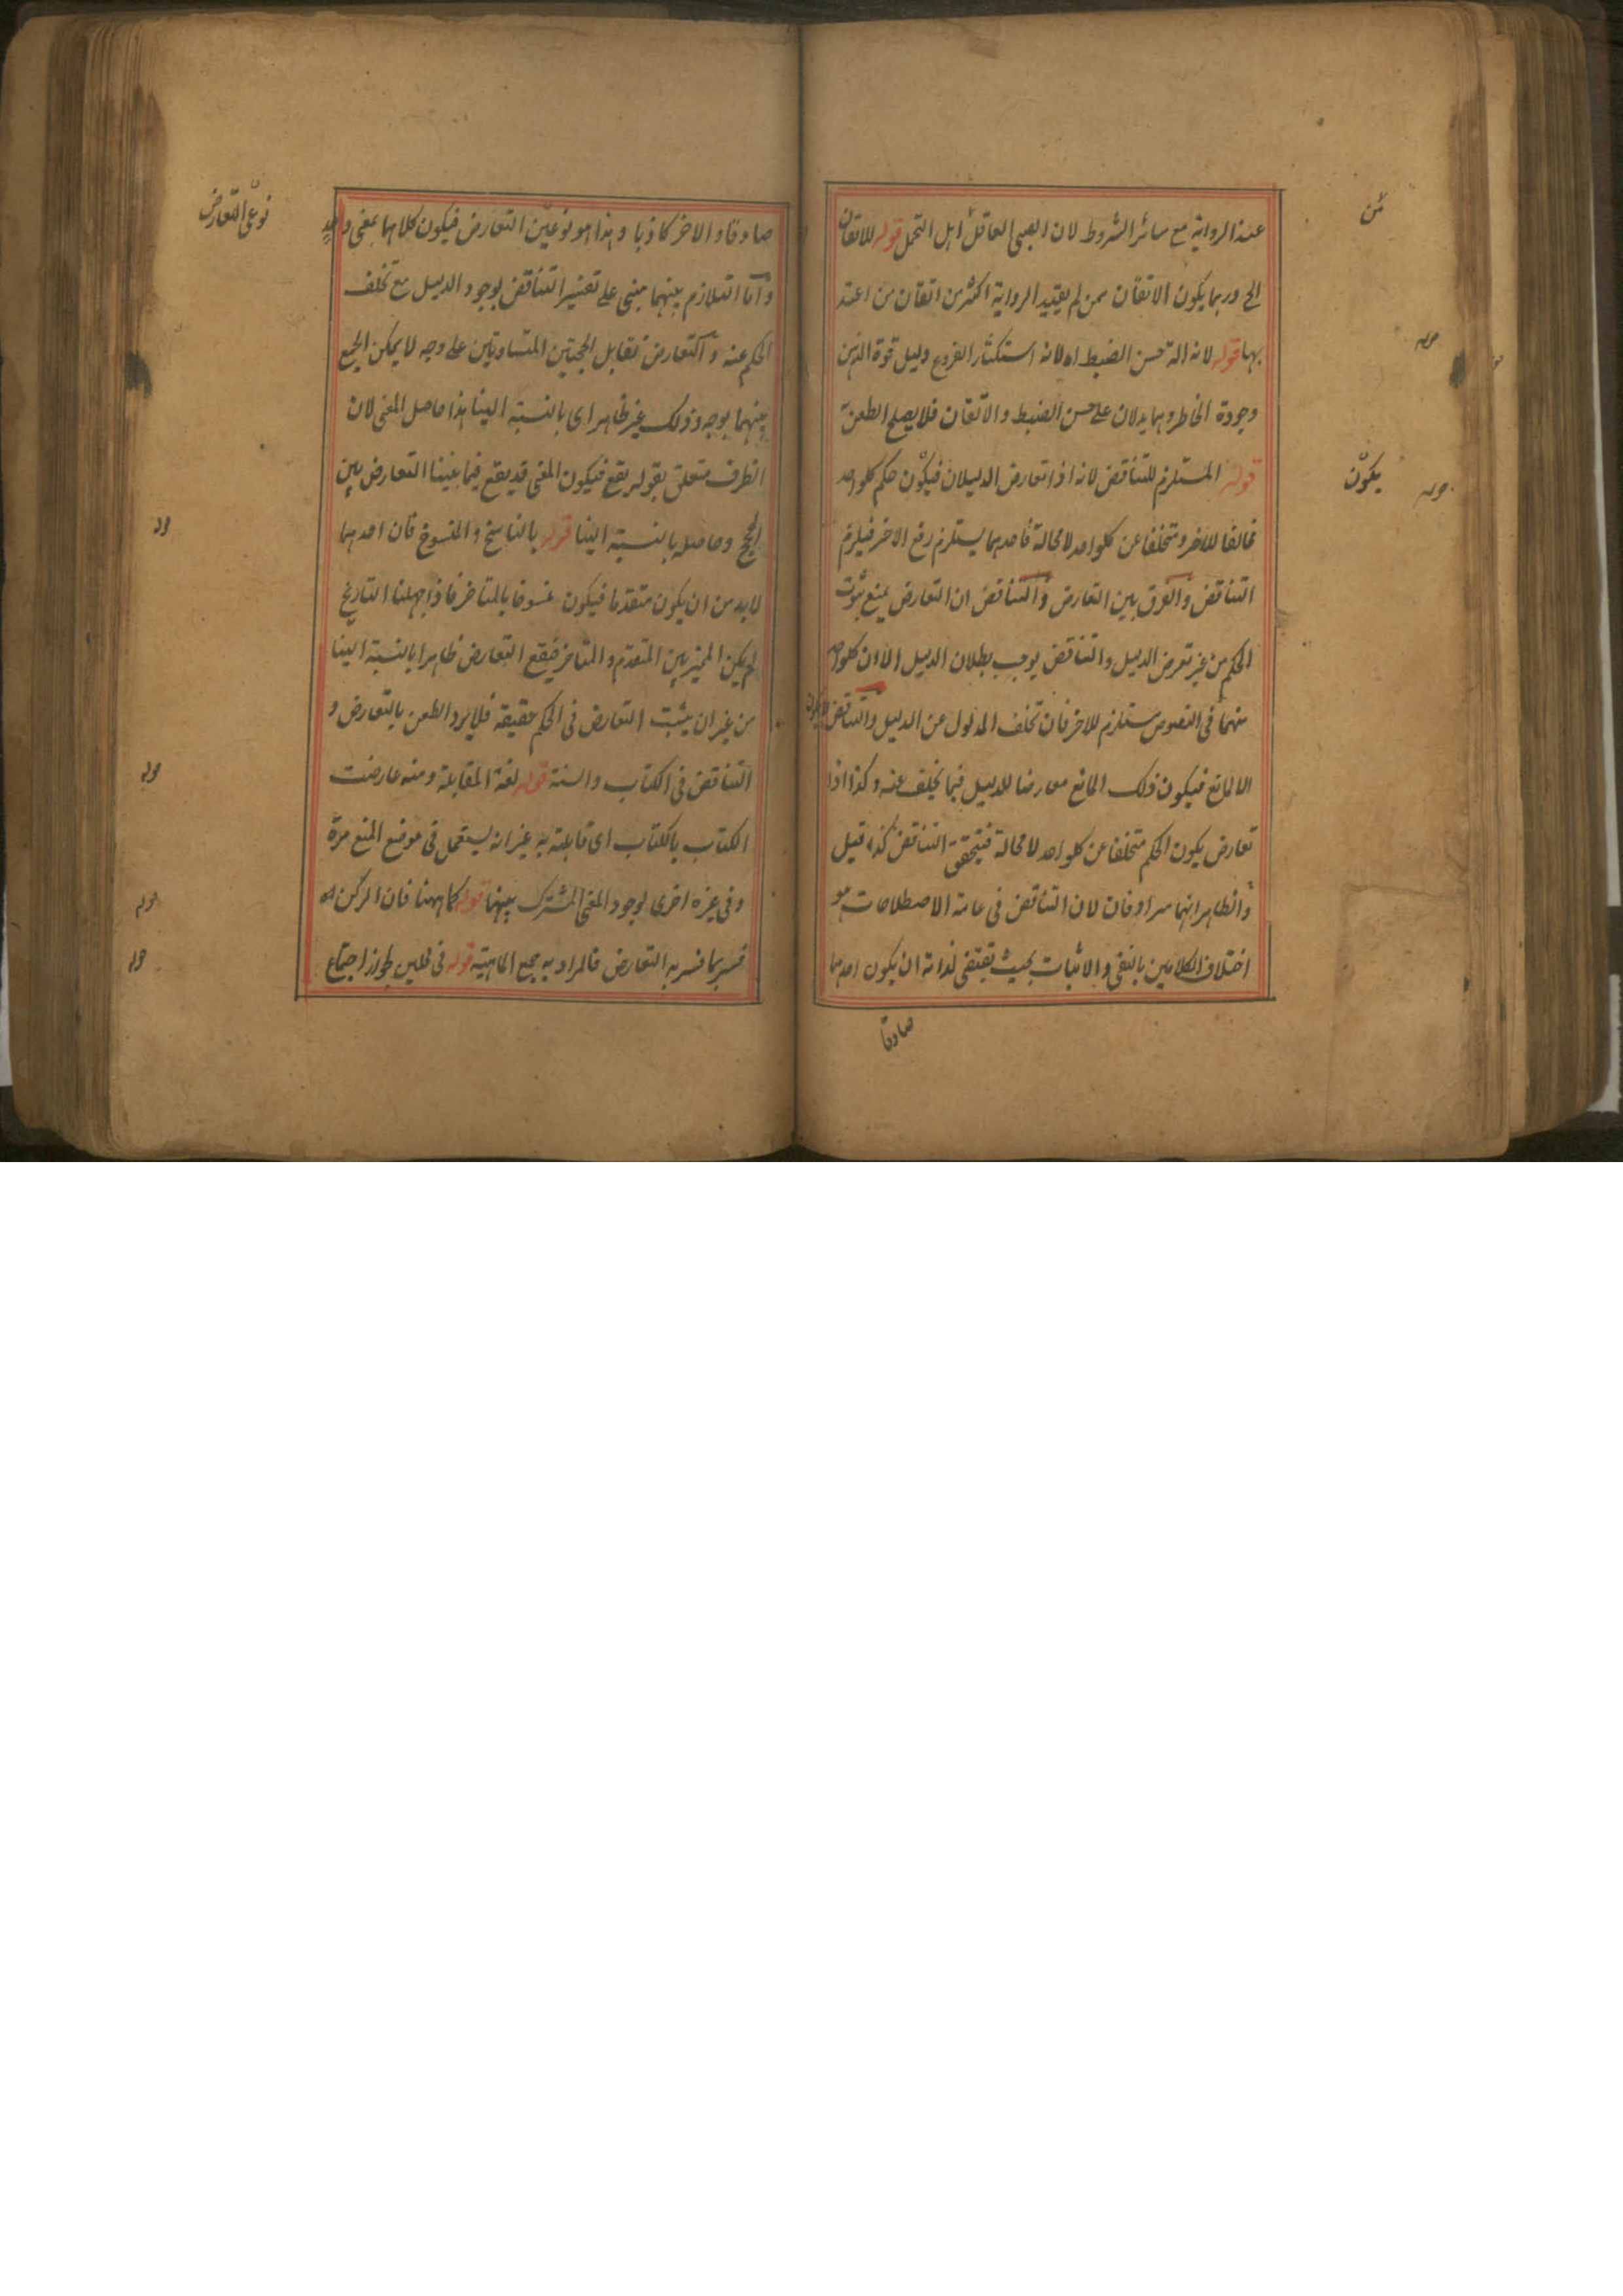 عند الرواية مع سائر الشروط لان الصبى العاقل اهل التحمل قوله للاتقان
الخ وربما يكون الاتقان ممن لم يعتد الرواية اكثر من اتقان من اعتد
بها قوله لانه الة حسن الضبط اه لانه استكثار الفروع دليل قوة الذهن
وجودة الخاطر وهما يدلان على حسن الضبط والاتقان فلا يصلح الطعن به
قوله المستلزم للتناقض لانه اذا تعارض الدليلان فيكون حكم كلواحد
مخالفا للاخر ومتخلفا عن كلواحد لا محالة فاحدهما يستلزم رفع الاخر فيلزم
التناقض والفرق بين التعارض والتناقض ان التعارض يمنع ثبوت
الحكم من غير تعرض الدليل والتناقض يوجب بطلان الدليل الاول كلواحد
منهما فى النصوص مستلزم للاخر فان تخلف المدلول عن الدليل والتناقض لا يكون
الا لمانع فيكون ذلك المانع معارضا للدليل فيما تخلف عنه وكذا اذا
تعارض يكون الحكم متخلفا عن كلواحد لا محالة فيتحقق التناقض كذا قيل
والظاهر انهما مرادفان لان التناقض فى عامة الاصطلاحات هو
اختلاف الكلامين بالنفى والاثبات بحيث تقتضى لذاته ان يكون احدهما
صادقا
يكون
صادقا والاخر كاذبا وهذا هو نوعين التعارض فيكون كلاهما بمعنى واحد
واما التلازم بينهما مبنى على تفسير التناقض بوجود الدليل مع تخلف
الحكم عنه والتعارض تقابل الحجتين المتساويتين على وجه لا يمكن الجمع
بينهما بوجه وذلك غير ظاهر اى بالنسبة الينا هذا حاصل المعنى لان
الظرف متعلق بقوله يقع فيكون المعنى قد يقع فيما بيننا التعارض بين
الحجج وحاصله بالنسبة الينا قوله بالناسخ والمنسوخ فان احدهما
لا بد من ان يكون متقدما فيكون منسوخا بالمتاخر فاذا جهلنا التاريخ
لم يكن المميز بين المتقدم والمتاخر فيقع التعارض ظاهرا بالنسبة الينا
من غير ان يثبت التعارض فى الحكم حقيقة فلا يرد الطعن بالتعارض و
التناقض فى الكتاب والسنة قوله لغة المقابلة ومنه عارضت
الكتاب بالكتاب اى قابلته به غير انه يستعمل فى موضع المنع مرة
وفى غيره اخرى لوجود المعنى المشترك بينهما قوله كما ههنا فان الركن اه
فسر بما فسر به التعارض فالمراد به جميع الماهية قوله فى محلين لجواز اجتماع
نوعى التعارض